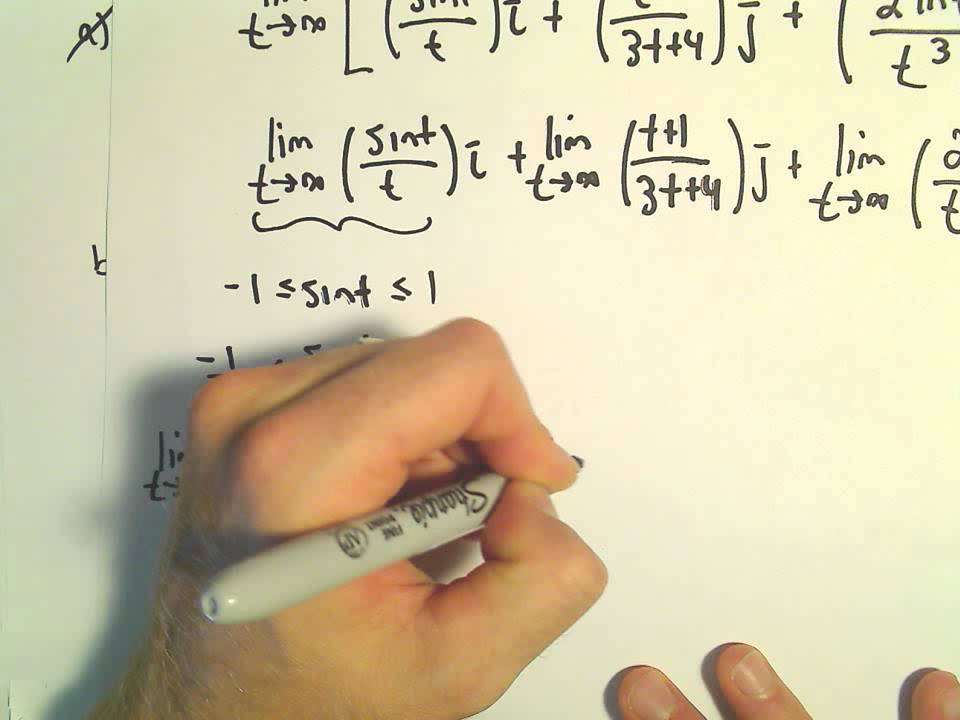 a)
t→∞ [ (sint/t) i̅ + ( /3t+4) j̅ + (2ln / t³
lim t→∞ (sint/t) i̅ + lim t→∞ (t+1/3t+4) j̅ + lim t→∞ (2/t
b
-1 ≤ sint ≤ 1
-1
lim t→
Sharpie. FINE POINT AP